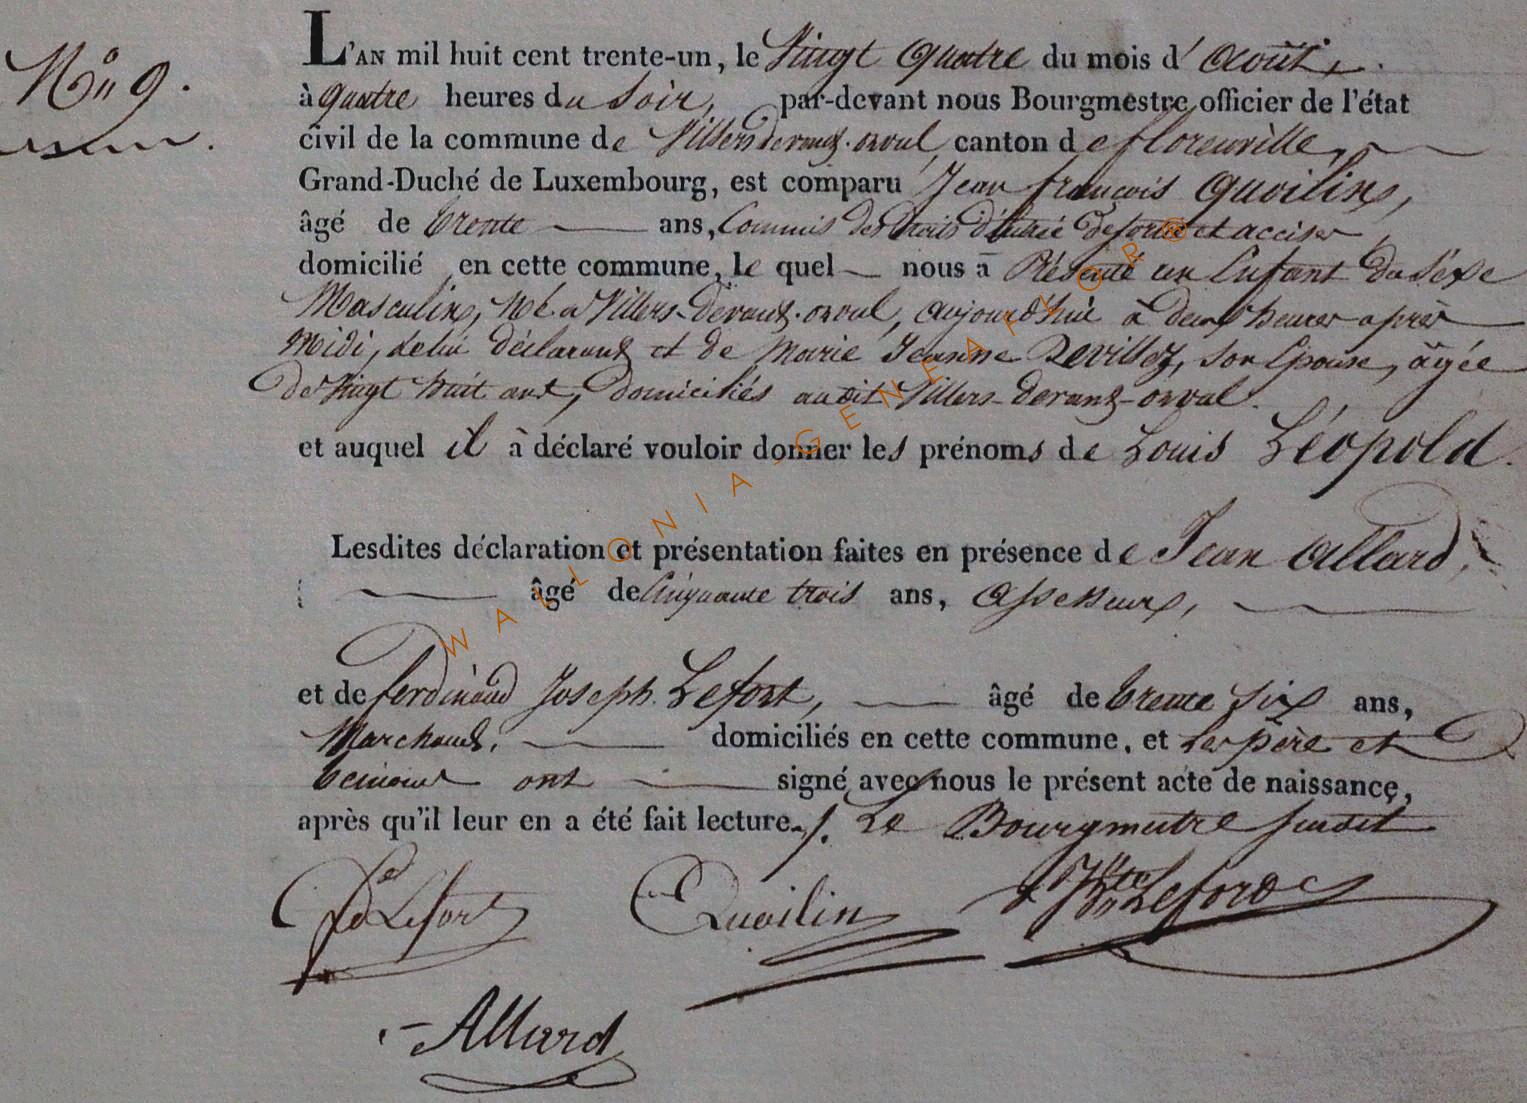 N° 9.
L'AN mil huit cent trente-un, le Vingt quatre du mois d'août,
à quatre heures du Soir, par-devant nous Bourgmestre officier de l'état
civil de la commune de Villers devant-orval, canton de florenville,
Grand-Duché de Luxembourg, est comparu Jean françois Quoilin,
âgé de trente ans, Commis des droits d'entrée de sortie et accises,
domicilié en cette commune, le quel nous à Présenté un Enfant du Séxe
Masculin, Né a Villers-devant-orval, aujourd'huï à deux heures après
Midi, de lui déclarant et de Marie Jeanne Devillez, son Epouse, âgée
de Vingt huit ans, domiciliés audit Villers-devant-orval.
et auquel il à déclaré vouloir donner les prénoms de Louis Léopold.
Lesdites déclaration et présentation faites en présence de Jean Allard,
âgé de Cinquante trois ans, Assesseur,
et de ferdinand Joseph Lefort, âgé de trente six ans,
Marchand, domiciliés en cette commune, et Les père et
temoins ont signé avec nous le présent acte de naissance,
après qu'il leur en a été fait lecture./. Le Bourgmestre susdit
Fd Lefort Quoilin
Allard
WALLONIA-GENEAFLOR®